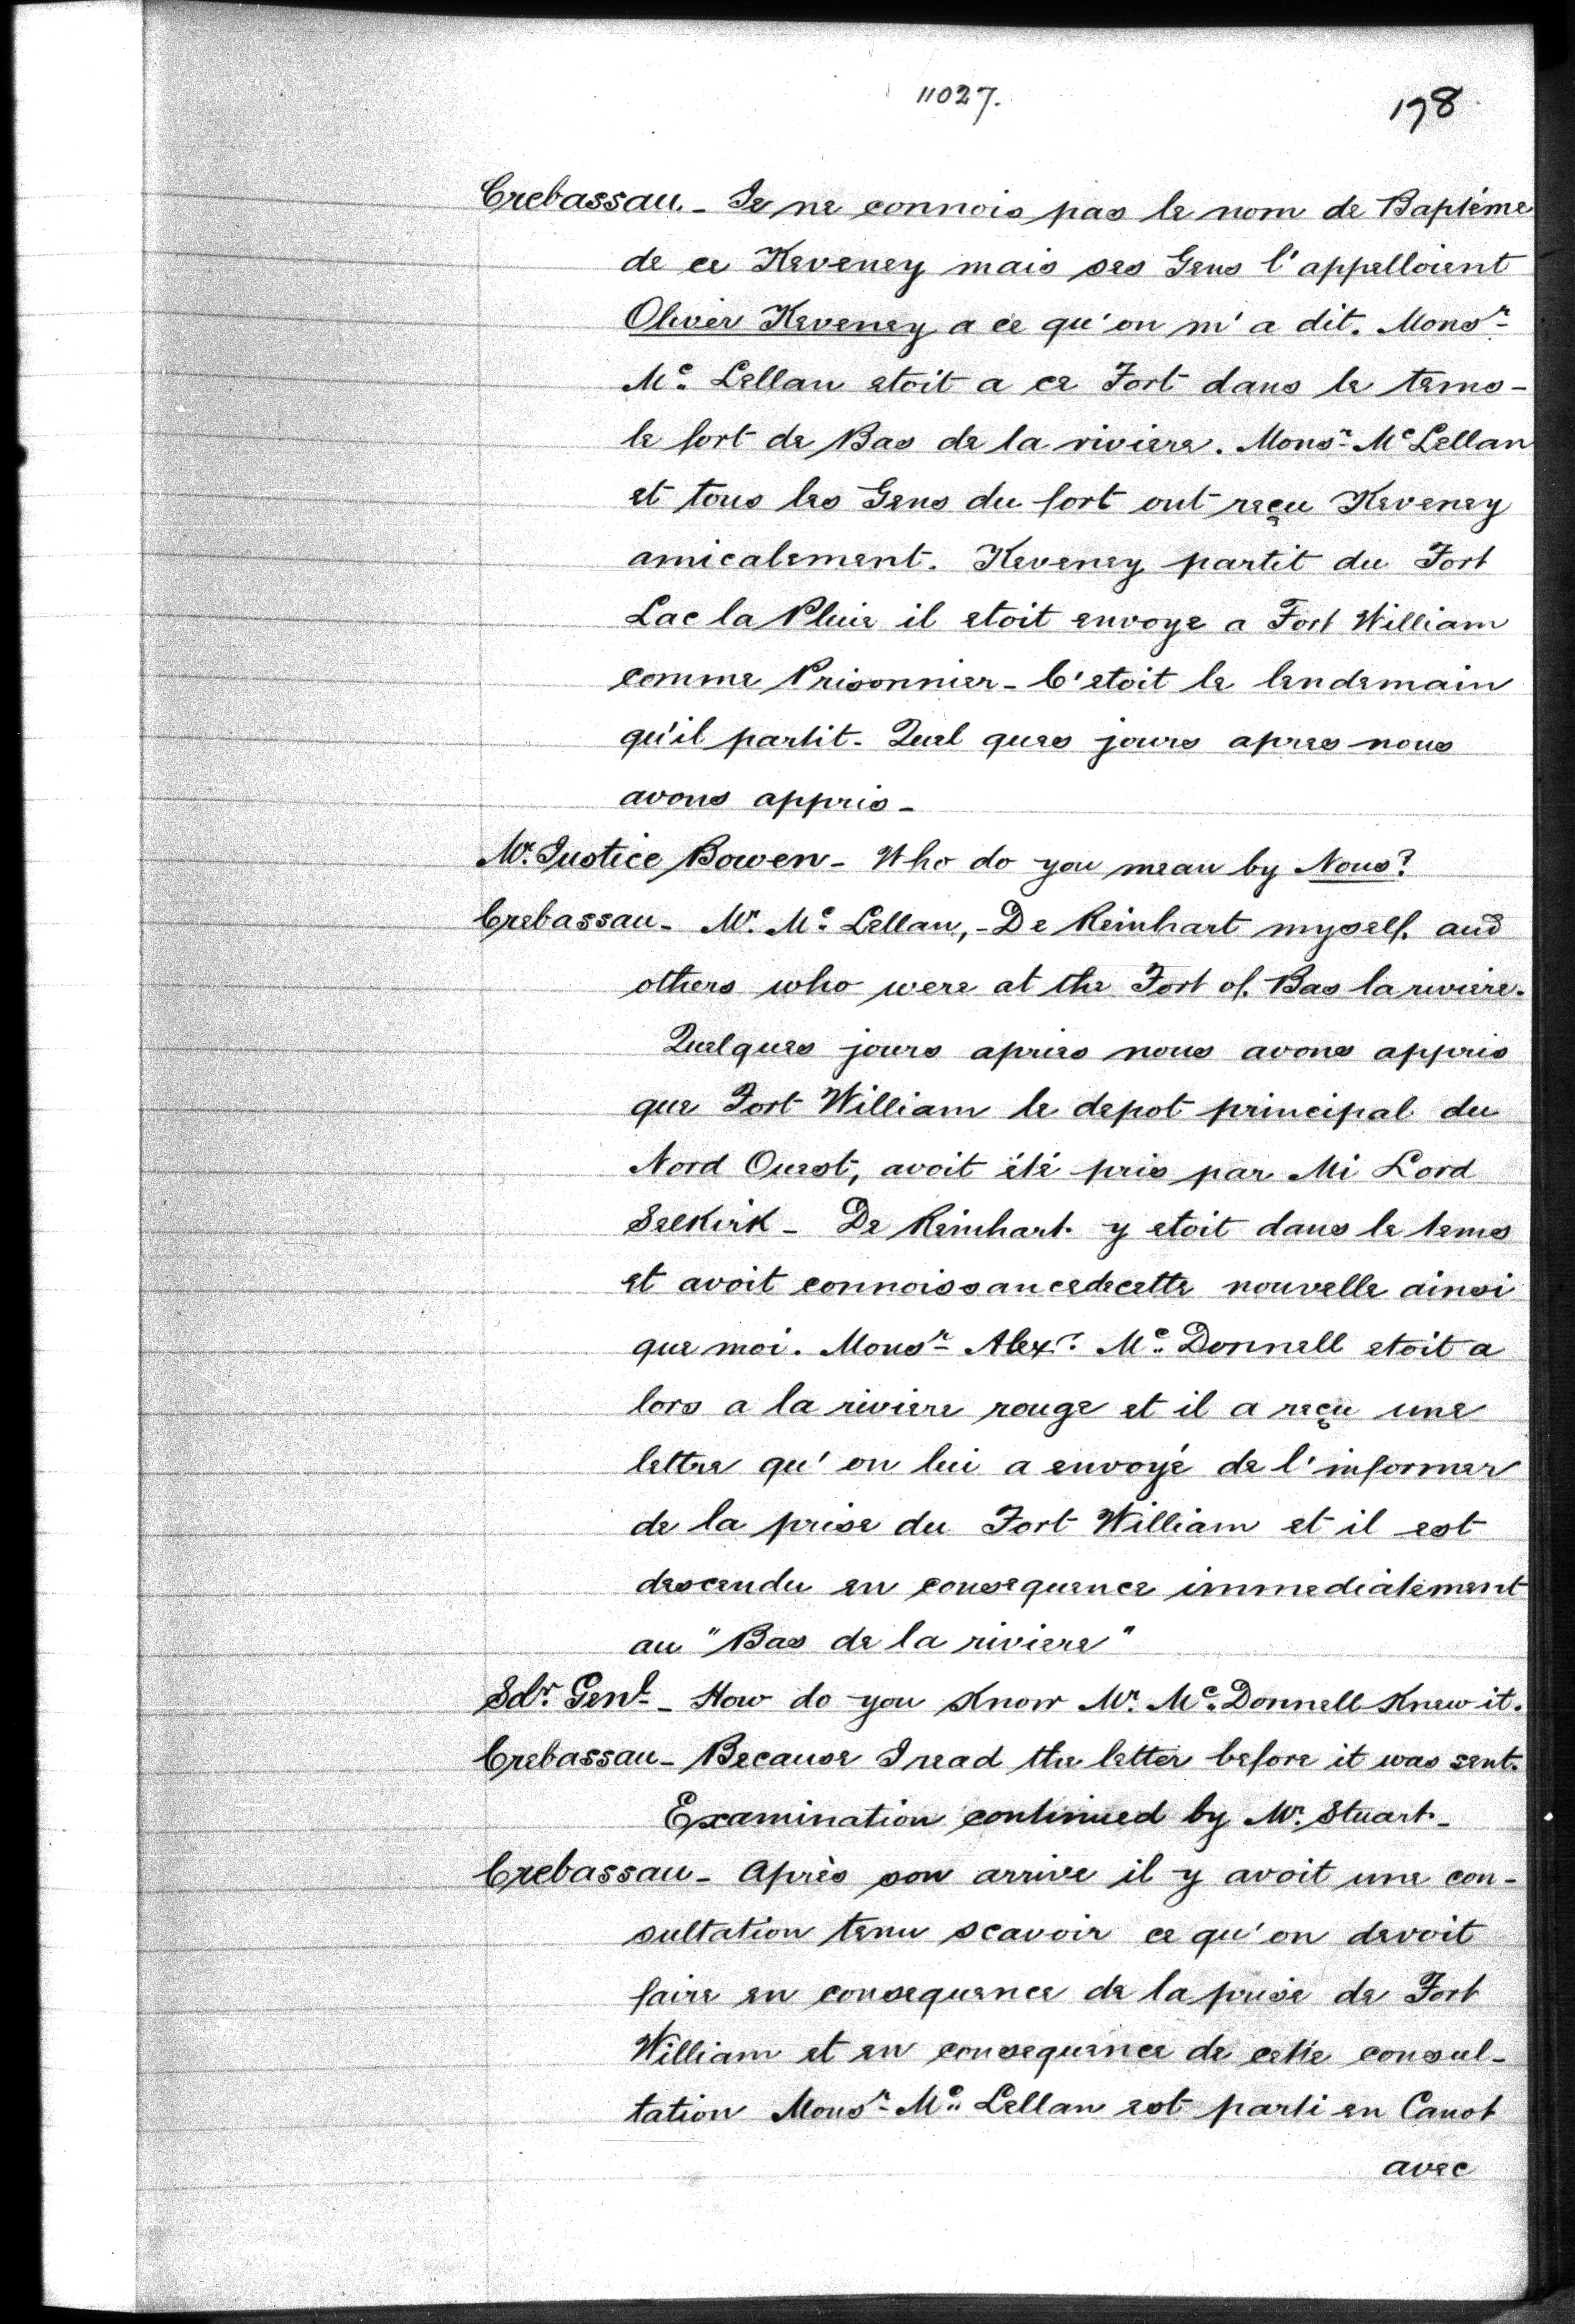 11027.
198
Crebassau. - Je ne connois pas le nom de Baptéme
de ce Keveney mais ses Gens l'appelloient
Oliver Keveney a ce qu'on m'a dit. Monsr
Mc Lellan etoit a ce Fort dans le tems -
le fort de Bas de la riviere. Monsr Mc Lellan
et tous les Gens du fort ont reçu Keveney
amicalement. Keveney partit du Fort
Lac la Pluie il etoit envoye a Fort William
comme Prisonnier - C'etoit le lendemain
qu'il partit. Quel ques jours apres nous
avons appris -
Mr. Justice Bowen - Who do you mean by Nous?
Crebassau - Mr. Mc Lellan, - De Reinhart myself and
others who were at the Fort of Bas la riviere.
Quelques jours apries nous avons appris
que Fort William le depot principal du
Nord Ouest, avoit été pris par Mi Lord
Selkirk - De Reinhart y etoit dans le tems
et avoit connoissancedecette nouvelle ainsi
que moi. Monsr Alexr. Mc Donnell etoit a
lors a la riviere rouge et il a reçu une
lettre qu'on lui a envoyé de l'informer
de la prise du Fort William et il est
descendu en consequence immediatement
au "Bas de la riviere"
Sdr. Genl - How do you know Mr. Mc Donnell knew it.
Crebassau - Because I read the letter before it was sent.
Examination continued by Mr. Stuart -
Crebassau - Après son arrive il y avoit une con-
sultation tenu scavoir ce qu'on devoit
faire en consequence de la prise de Fort
William et en consequence de cette consul-
tation Monsr Mc Lellan est parti en Canot
avec